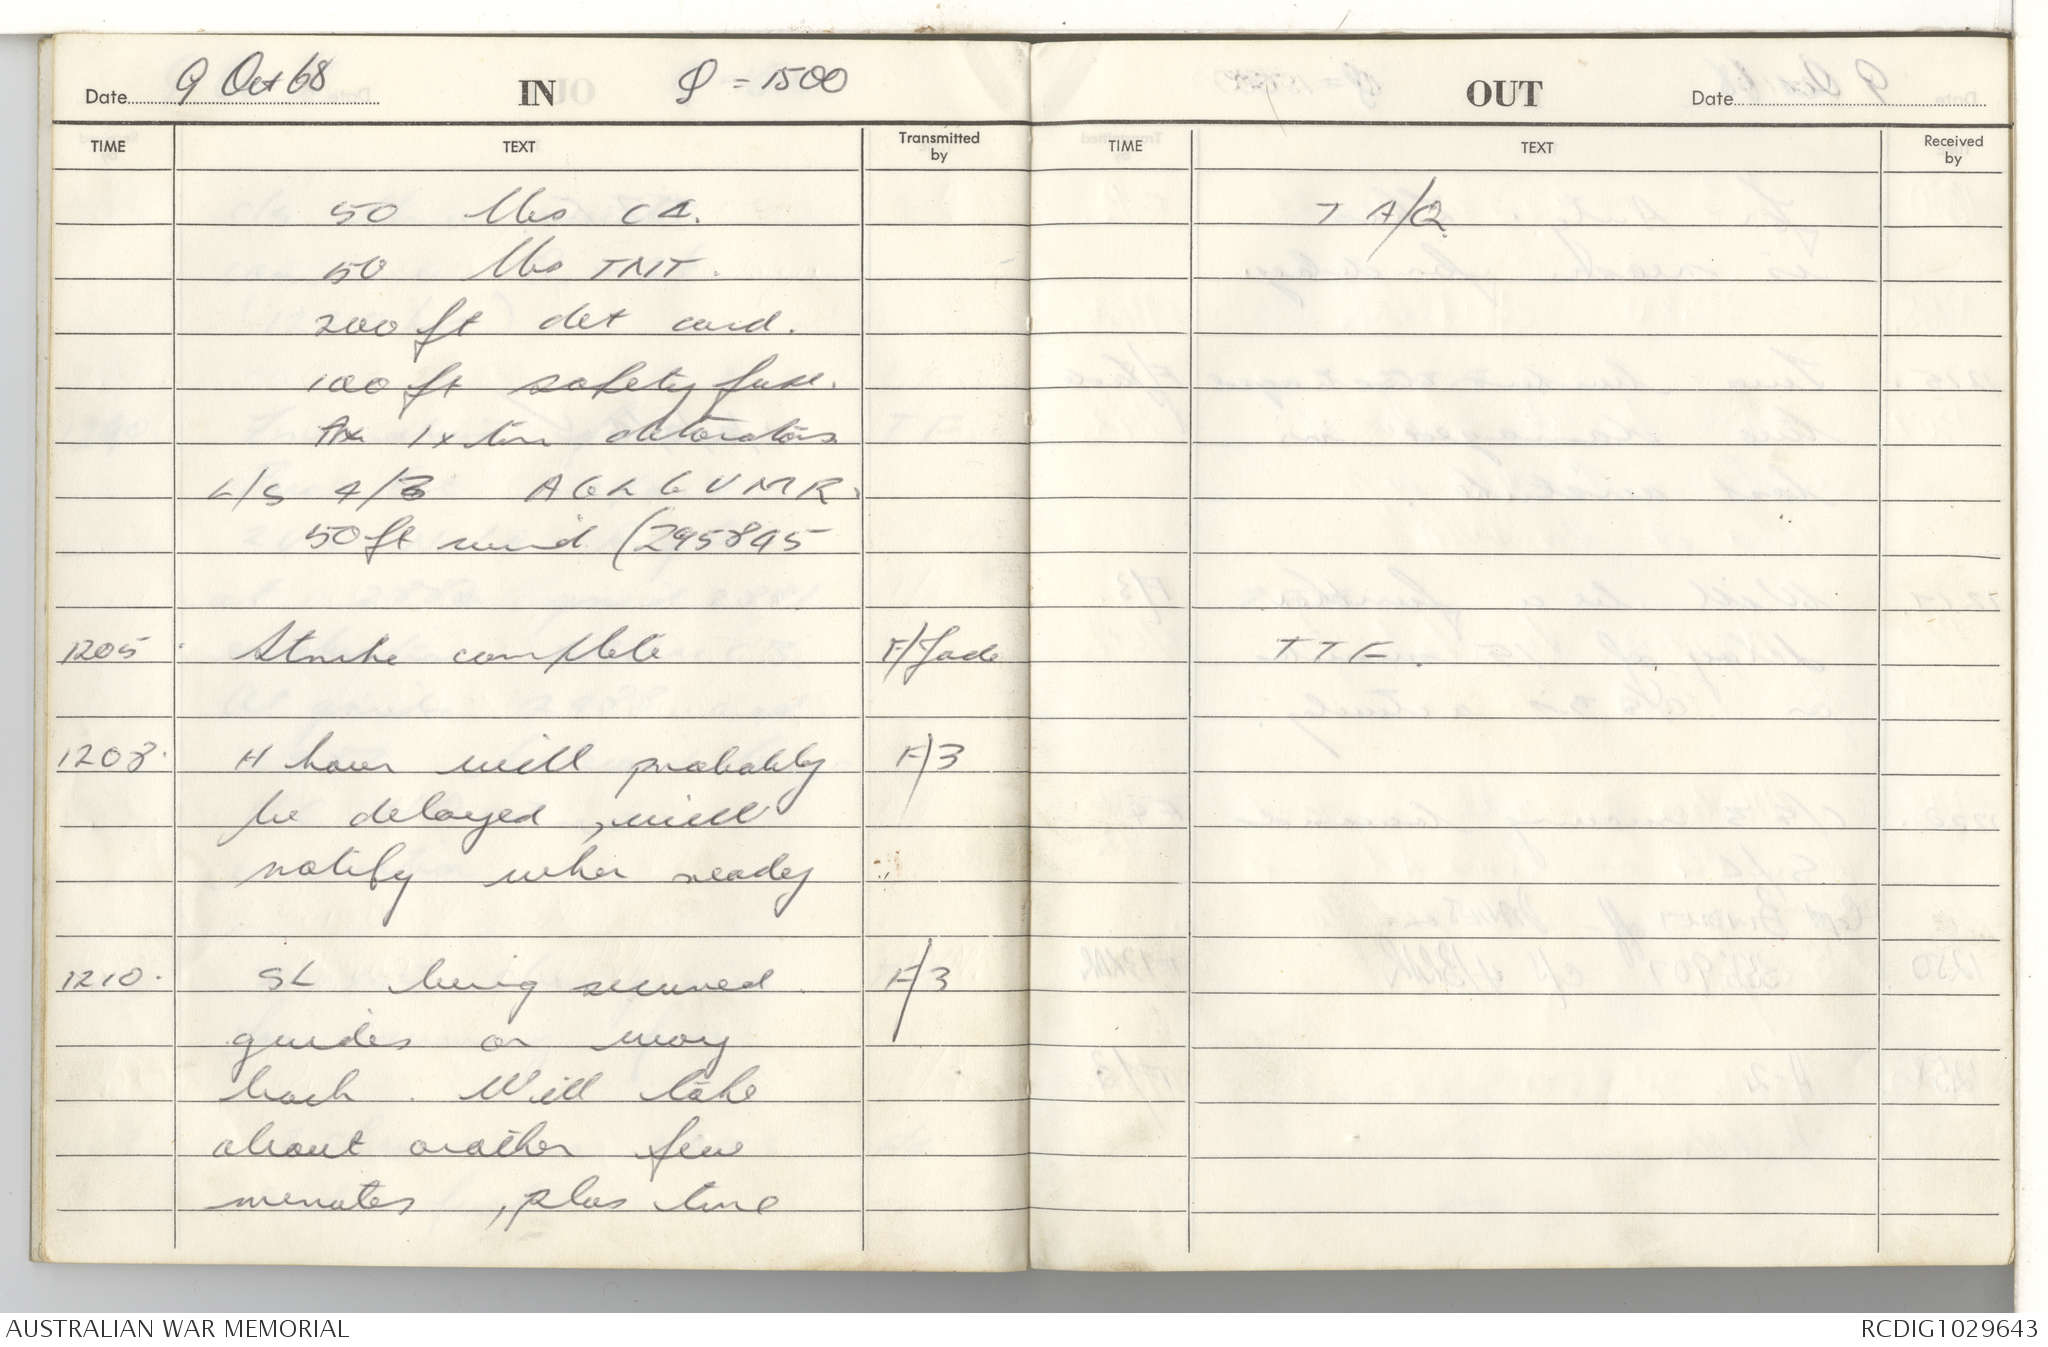 Date 9 Oct 68 IN = 1500
TIME TEXT Transmitted by
50 lbs C4.
50 lbs TNT.
200 ft det cord.
100 ft safety fuse.
1 x tin detonators
L/S 4/3 A G L G V M R.
50 ft wind (295895
1205 Strike complete F/Jade
1208. H hour will probably F/3
be delayed, will
notify when ready
1210. SL being secured F/3
guides on way
back. Will take
about another few
minutes, plus time
OUT Date
TIME TEXT Received by
T A/Q.
T T F.
AUSTRALIAN WAR MEMORIAL RCDIG1029643